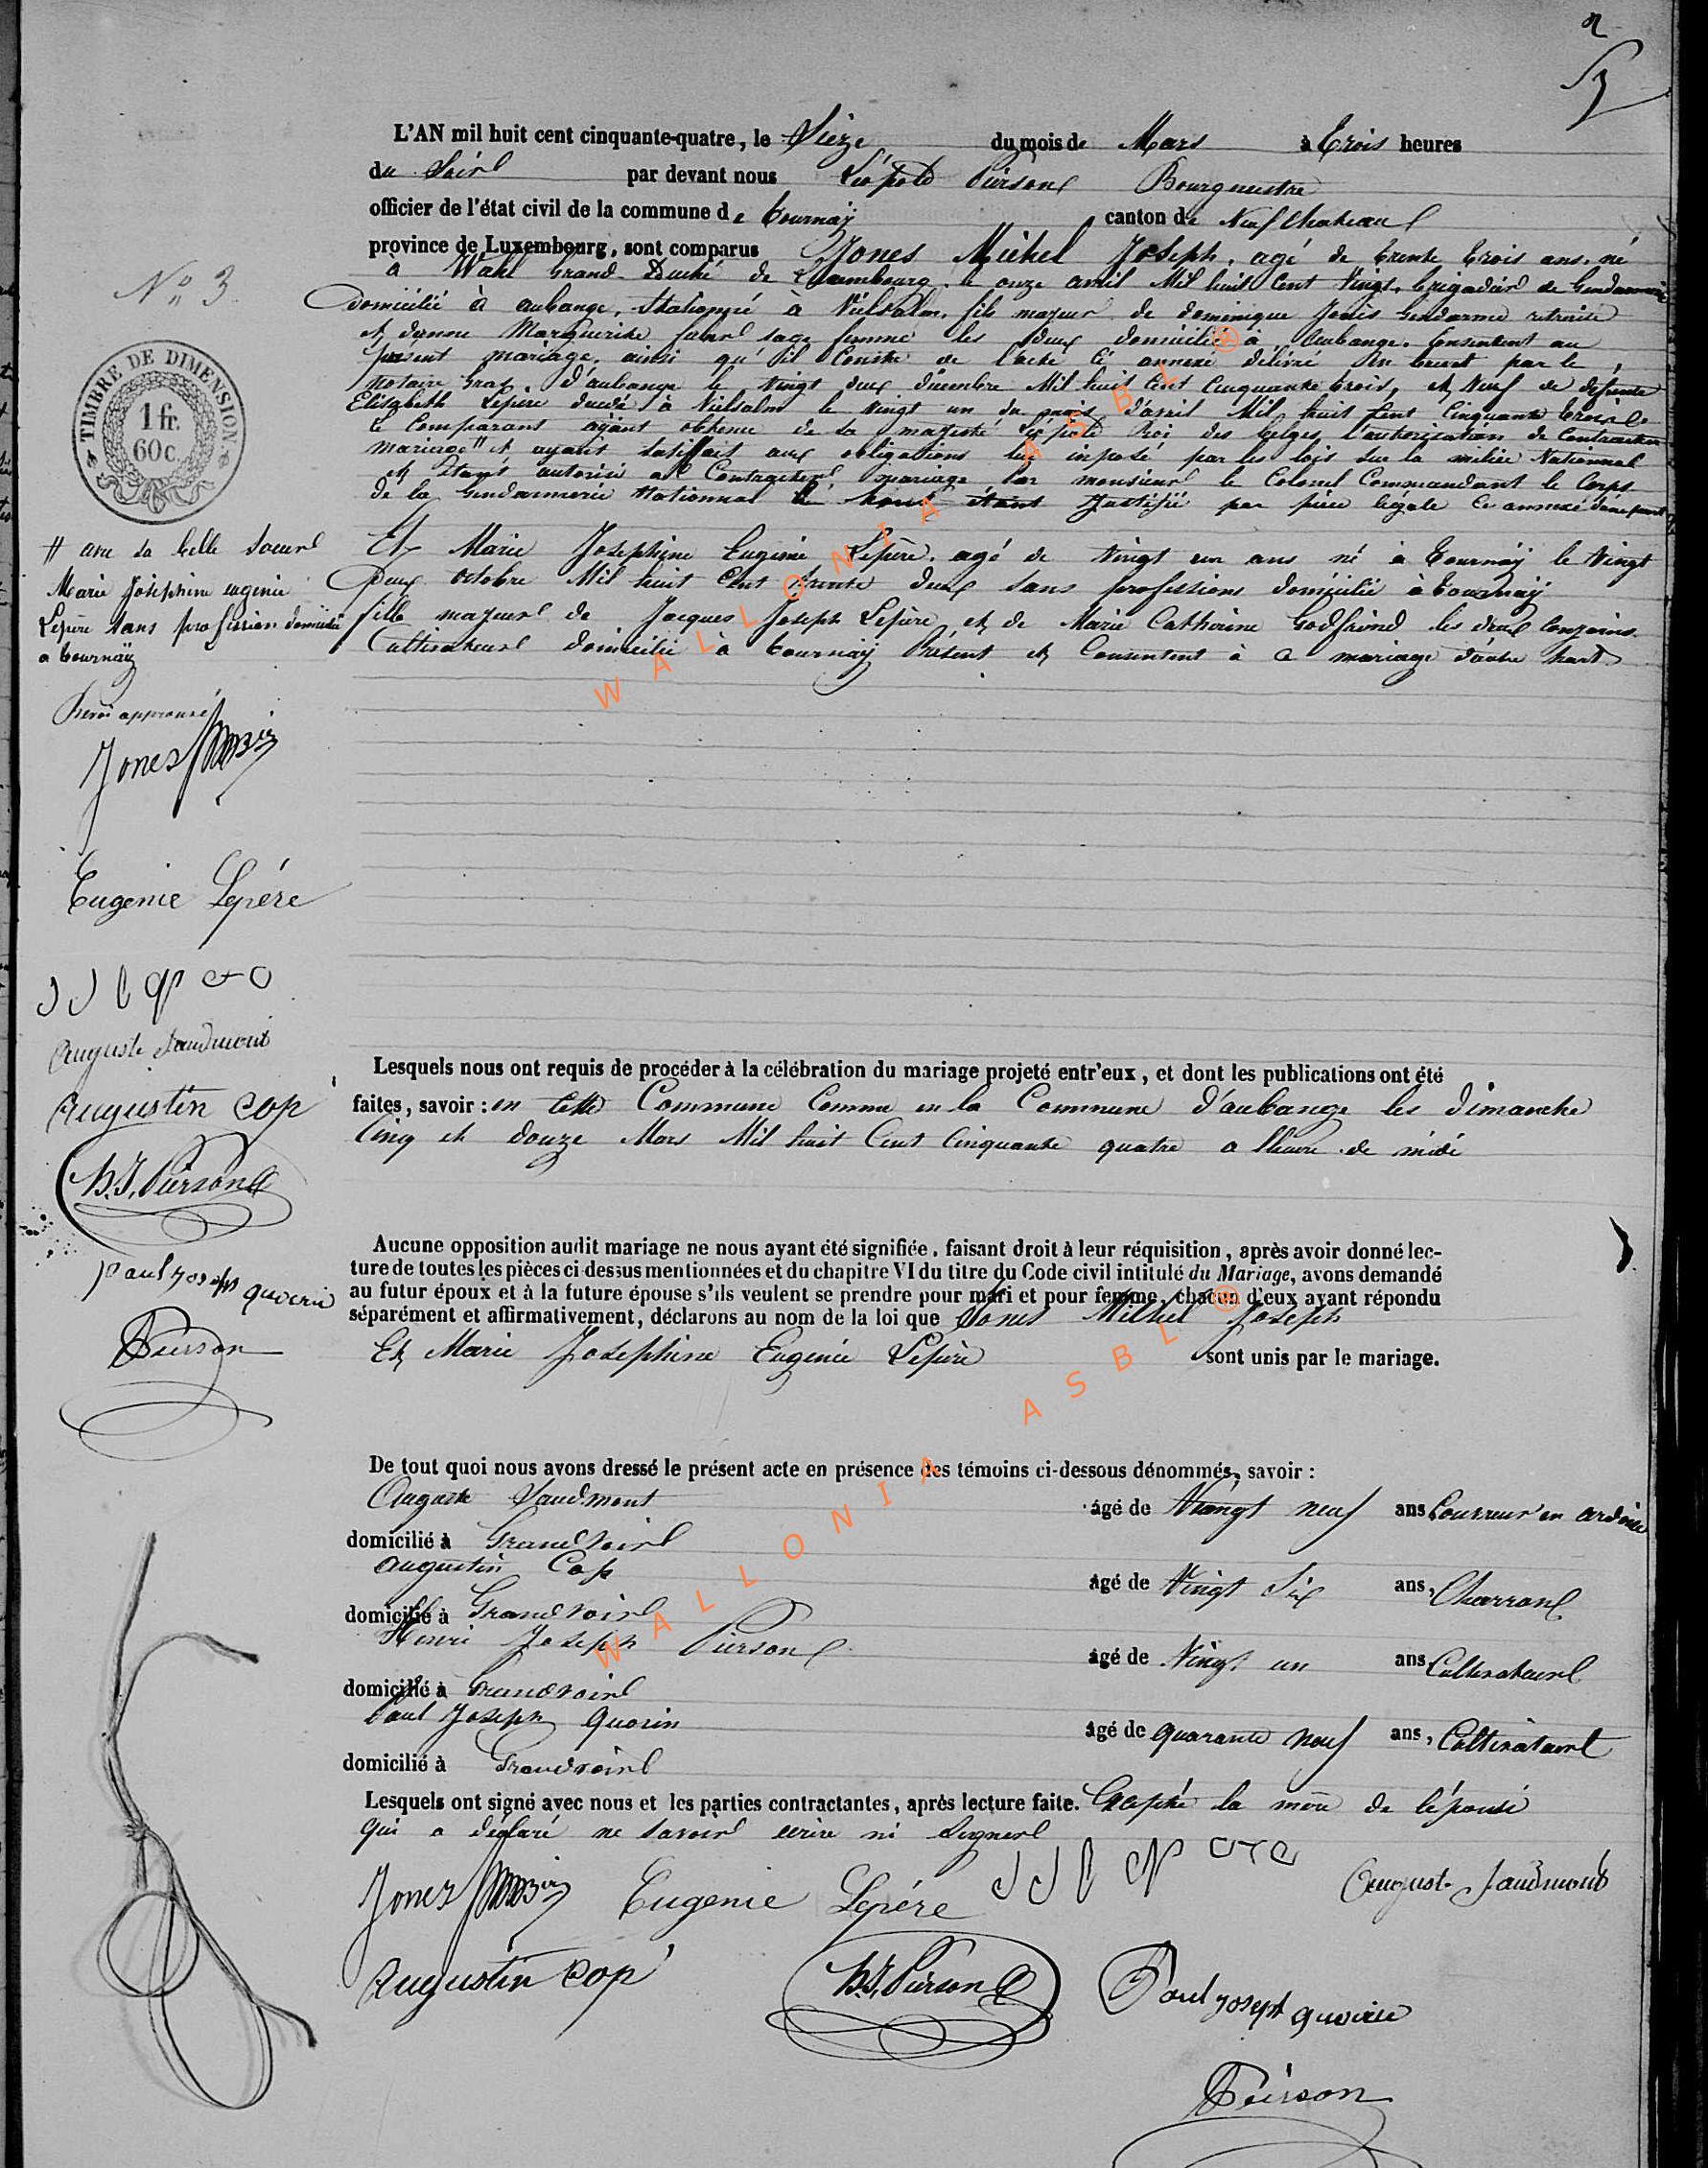 L'AN mil huit cent cinquante-quatre, le Sieze du mois de Mars à trois heures
du Soir par devant nous Léopold Pierson Bourgmestre
officier de l'état civil de la commune de tournaÿ canton de Neufchateau
province de Luxembourg, sont comparus Jones Michel Joseph, agé de trente trois ans, né
à Wahl Grand-Duché de Luxembourg le onze avril Mil huit Cent Vingt, brigadier de Gendarmerie
domicilié à aubange, Stationné à Vielsalm, fils majeur de dominique Jones Gendarme retraité
et danne Margueritte sage femme les deux domicilié à Aubange, Consentent au
présent mariage, ainsi qu'il Conste de l'acte ci annexé délivré En brevet par le
Notaire d'aubange le Vingt deux décembre Mil huit Cent Cinquante trois, et Veuf de défunte
Elisabeth Lepere decedé à Vielsalm le vingt un du mois d'avril Mil huit Cent Cinquante
le Comparant aÿant obtenu de sa majesté Léopold Roi des belges l'autorisation de Contracter
mariage # et ayant satisfait aux obligations lui imposé par les lois sur la milice National
et Etant autorisé a Contracter mariage par monsieur le Colonel Commandant le Corps
de la Gendarmerie National étant Justifié par pièce légale ci annexé d'une part
Et Marie Josephine Eugenie Lepère, agé de vingt un ans né à tournaÿ le Vingt
deux octobre Mil huit Cent trente deux Sans profession domiciliée à tournaÿ
fille majeur de Jacques Joseph Lepère et de Marie Catherine Godfrind les deux Conjoins
Cultivateurs domicilié à tournaÿ Présent et Consentent à Ce mariage d'autre part
N° 3
TIMBRE DE DIMENSION
1 fr.
60 c.
# avec sa belle Soeur
Marie Joséphine eugenie
Lepère Sans profession domicilié
a tournaÿ
Renvoi approuvé
Jones
Eugenie Lepére
Auguste Saudmont
Augustin Cop
H.J. Pierson
paul joseph
Pierson
Lesquels nous ont requis de procéder à la célébration du mariage projeté entr'eux, et dont les publications ont été
faites, savoir : en cette Commune Comme en la Commune d'aubange les dimanche
Cinq et douze Mars Mil huit Cent Cinquante quatre a lheure de midi
Aucune opposition audit mariage ne nous ayant été signifiée, faisant droit à leur réquisition, après avoir donné lec-
ture de toutes les pièces ci-dessus mentionnées et du chapitre VI du titre du Code civil intitulé du Mariage, avons demandé
au futur époux et à la future épouse s'ils veulent se prendre pour mari et pour femme, chacun d'eux ayant répondu
séparément et affirmativement, déclarons au nom de la loi que Jones Michel Joseph
Et Marie Josephine Eugenie Lepère sont unis par le mariage.
De tout quoi nous avons dressé le présent acte en présence des témoins ci-dessous dénommés, savoir :
Auguste Saudmont âgé de Viengt neuf ans Couvreur en ardoise
domicilié à Grandvoir
Augustin Cop âgé de Vingt Six ans, Charron
domicilié à Grandvoir
Henri Joseph Pierson âgé de Vingt un ans Cultivateur
domicilié à Grandvoir
Paul Joseph Quorin âgé de quarante neuf ans, Cultivateur
domicilié à Grandvoir
Lesquels ont signé avec nous et les parties contractantes, après lecture faite. Excepté la mère de l'épouse
qui a déclaré ne Savoir écrire ni Signer
Jones Eugenie Lepére August Saudmont
Augustin Cop H.J. Pierson Paul joseph
Pierson
WALLONIA ASBL ®
WALLONIA ASBL ®